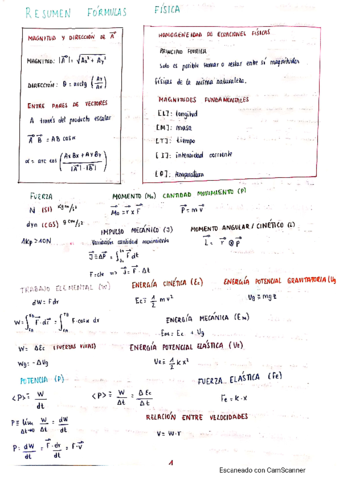 RESUMEN FÓRMULAS FÍSICA
MAGNITUD Y DIRECCIÓN DE A⃗
MAGNITUD: |A⃗| = √(Ax² + Ay²)
DIRECCIÓN: θ = arctg (Ay/Ax)
ENTRE PARES DE VECTORES
A través del producto escalar
A⃗ B⃗ = AB cos α
α = arc cos (AxBx + AyBy / |A⃗|·|B⃗|)
HOMOGENEIDAD DE ECUACIONES FÍSICAS
PRINCIPIO FOURIER
Solo es posible sumar o restar entre sí magnitudes
físicas de la misma naturaleza.
MAGNITUDES FUNDAMENTALES
[L]: longitud
[M]: masa
[T]: tiempo
[I]: intensidad corriente
[θ]: temperatura
FUERZA
N (SI) kg m/s²
dyn (CGS) g cm/s²
1kp → 10N
MOMENTO (Mo)
M⃗o = r⃗ x F⃗
CANTIDAD MOVIMIENTO (P)
P⃗ = m v⃗
IMPULSO MECÁNICO (J)
Variación cantidad movimiento
J⃗ = ΔP⃗ = ∫ F⃗ dt
F = cte => J⃗ = F⃗ · Δt
MOMENTO ANGULAR / CINÉTICO (L)
L⃗ = r⃗ ⊗ p⃗
TRABAJO ELEMENTAL (W)
dW = F dr
W = ∫ F⃗ · dr⃗ = ∫ F·cos α dr
W = ΔEc (FUERZAS VIVAS)
Wg = -ΔUg
ENERGÍA CINÉTICA (Ec)
Ec = 1/2 m v²
ENERGÍA POTENCIAL GRAVITATORIA (Ug
Ug = mg z
ENERGÍA MECÁNICA (Em)
Em = Ec + Ug
ENERGÍA POTENCIAL ELÁSTICA (Ue)
Ue = 1/2 k x²
POTENCIA (P)
<P> = W/dt
<P> = W/Δt = ΔEc/Δt
P = lim Δt→0 W/Δt = dW/dt
P = dW/dt = F⃗·dr/dt = F·v⃗
FUERZA ELÁSTICA (Fe)
Fe = k · x
RELACIÓN ENTRE VELOCIDADES
V = W · r
1
Escaneado con CamScanner